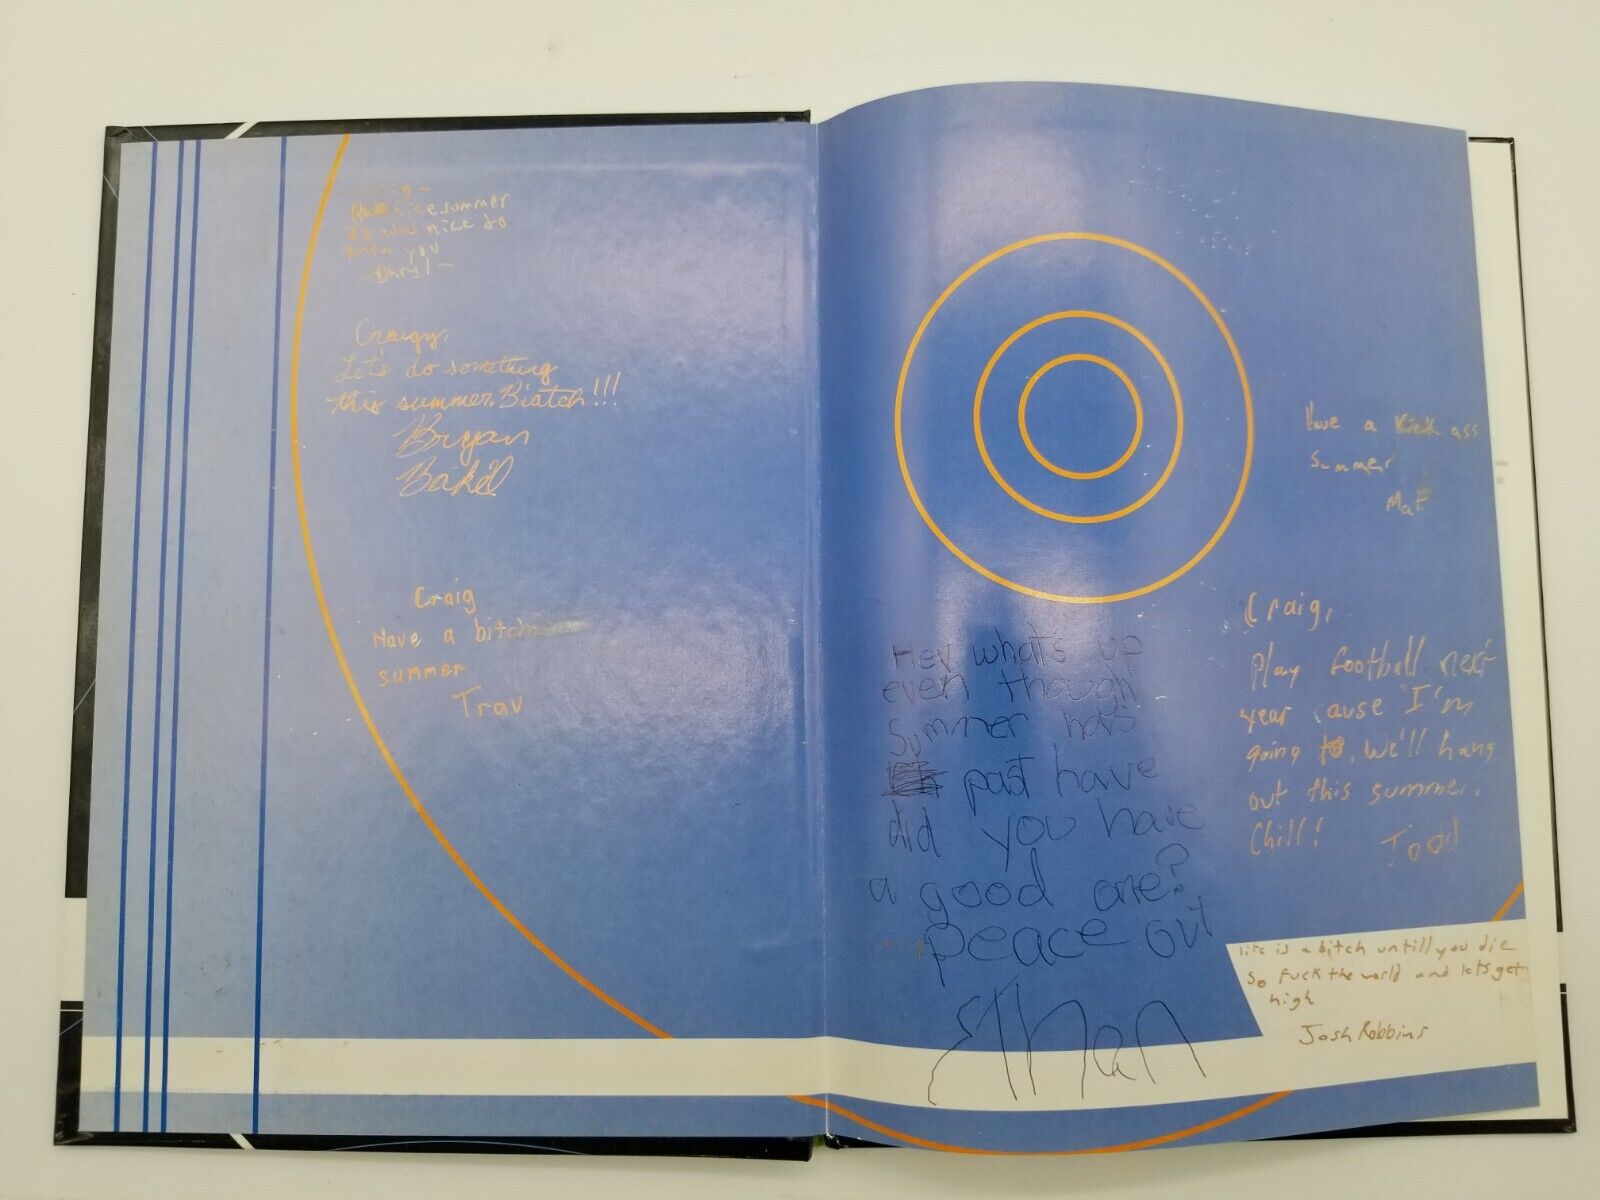 nice summer
It was nice to
know you
-Daryl-
Craigy,
Let's do something
this summer. Biatch!!!
Bryan
Craig
Have a bitchin
summer
Trav
Have a kick ass
summer
Mat
Hey what's up
even though
Summer has
past have
did you have
a good one?
peace out
Ethan
Craig,
Play football next
year cause I'm
going to. We'll hang
out this summer.
Chill!
Todd
life is a bitch untill you die
So fuck the world and lets get
high
Josh Robbins